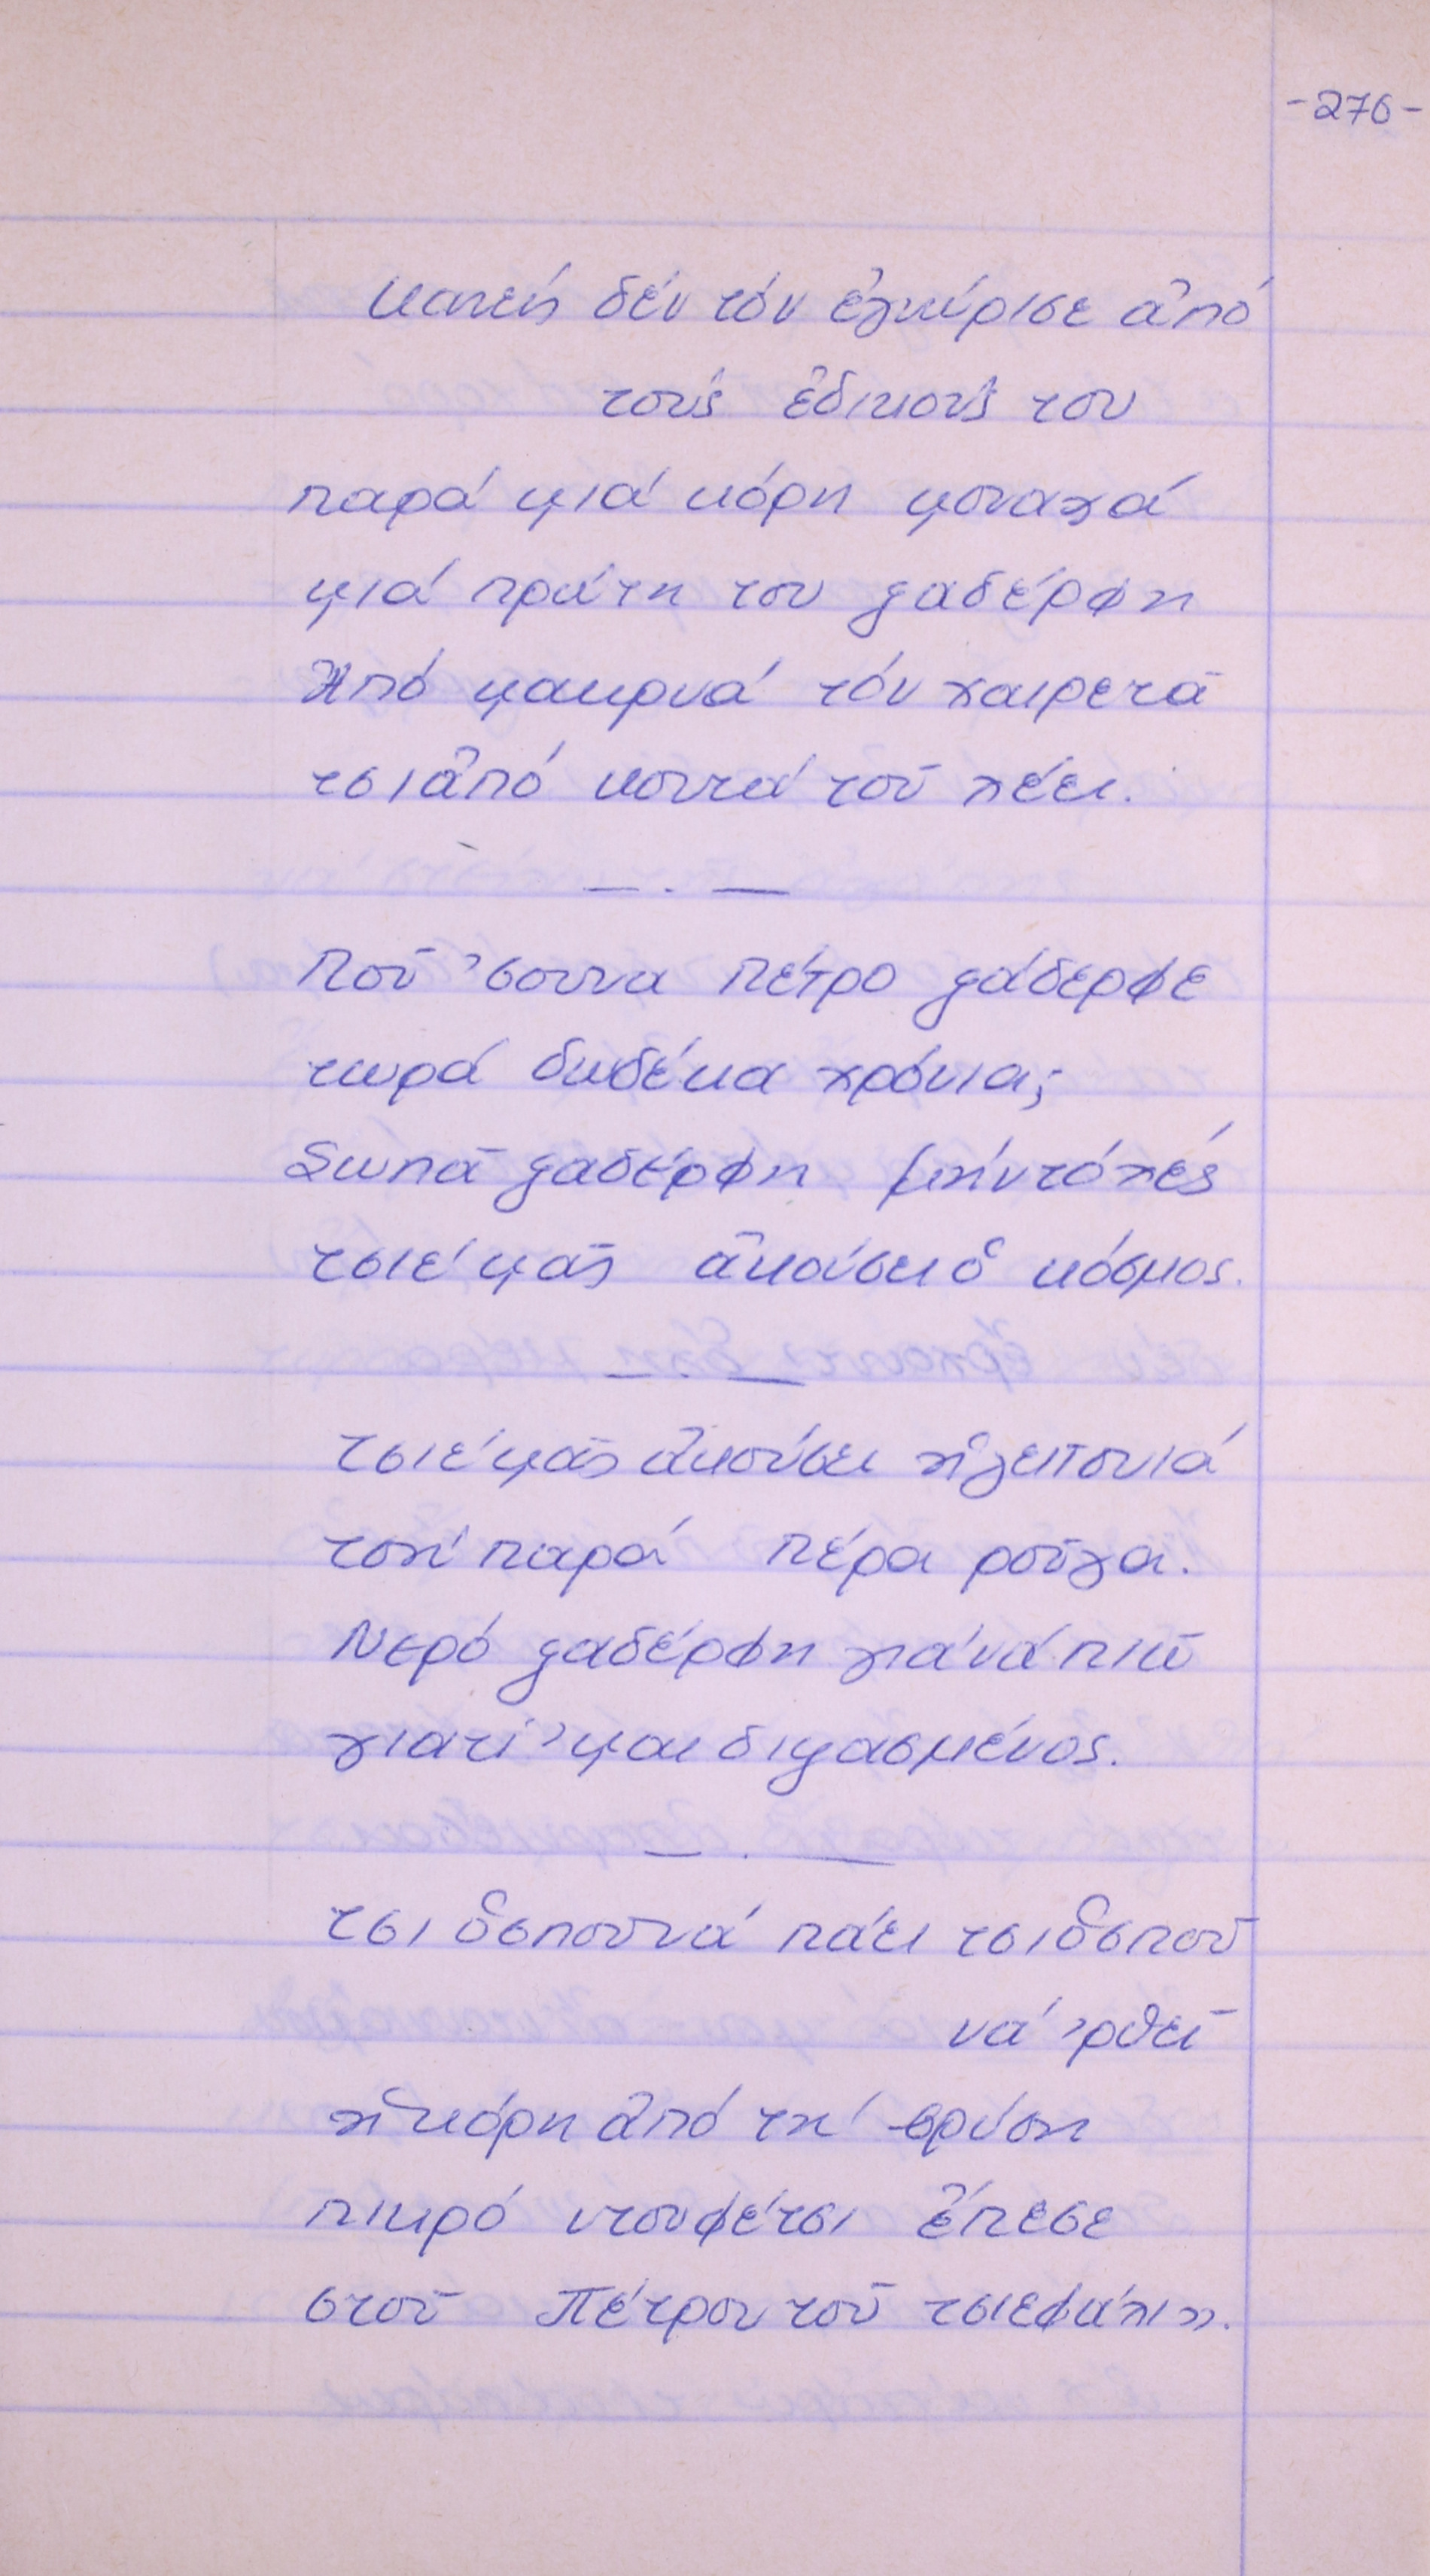 -276-
Κανείς δέν τόν ἐγνώρισε ἀπό
τούς ἐδικούς του
παρά μιά κόρη μοναχά
μιά πρώτη του γαδέρφη
Ἀπό μακρυά τόν χαιρετᾶ
τσιἀπό κοντά τοῦ λέει.
— . —
Ποῦ 'σουνα Πέτρο γάδερφε
τωρά δωδέκα χρόνια;
Σωπᾶ γαδέρφη μήντόλές
τσιέ μᾶς ἀκούσει ὁ κόσμος.
— . —
τσιέ μᾶς ἀκούσει ἡ γειτονιά
τσή παρά πέρα ροῦγα.
Νερό γαδέρφη γιά νά πιῶ
γιατί 'μαι διψασμένος.
— . —
τσι ὁσποῦνά πάει τσι ὁσποῦ
νά 'ρθεῖ
ἡ κόρη ἀπό τή βρύση
πικρό ντουφέτσι ἔπεσε
στοῦ Πέτρου τοῦ τσιεφάλι».